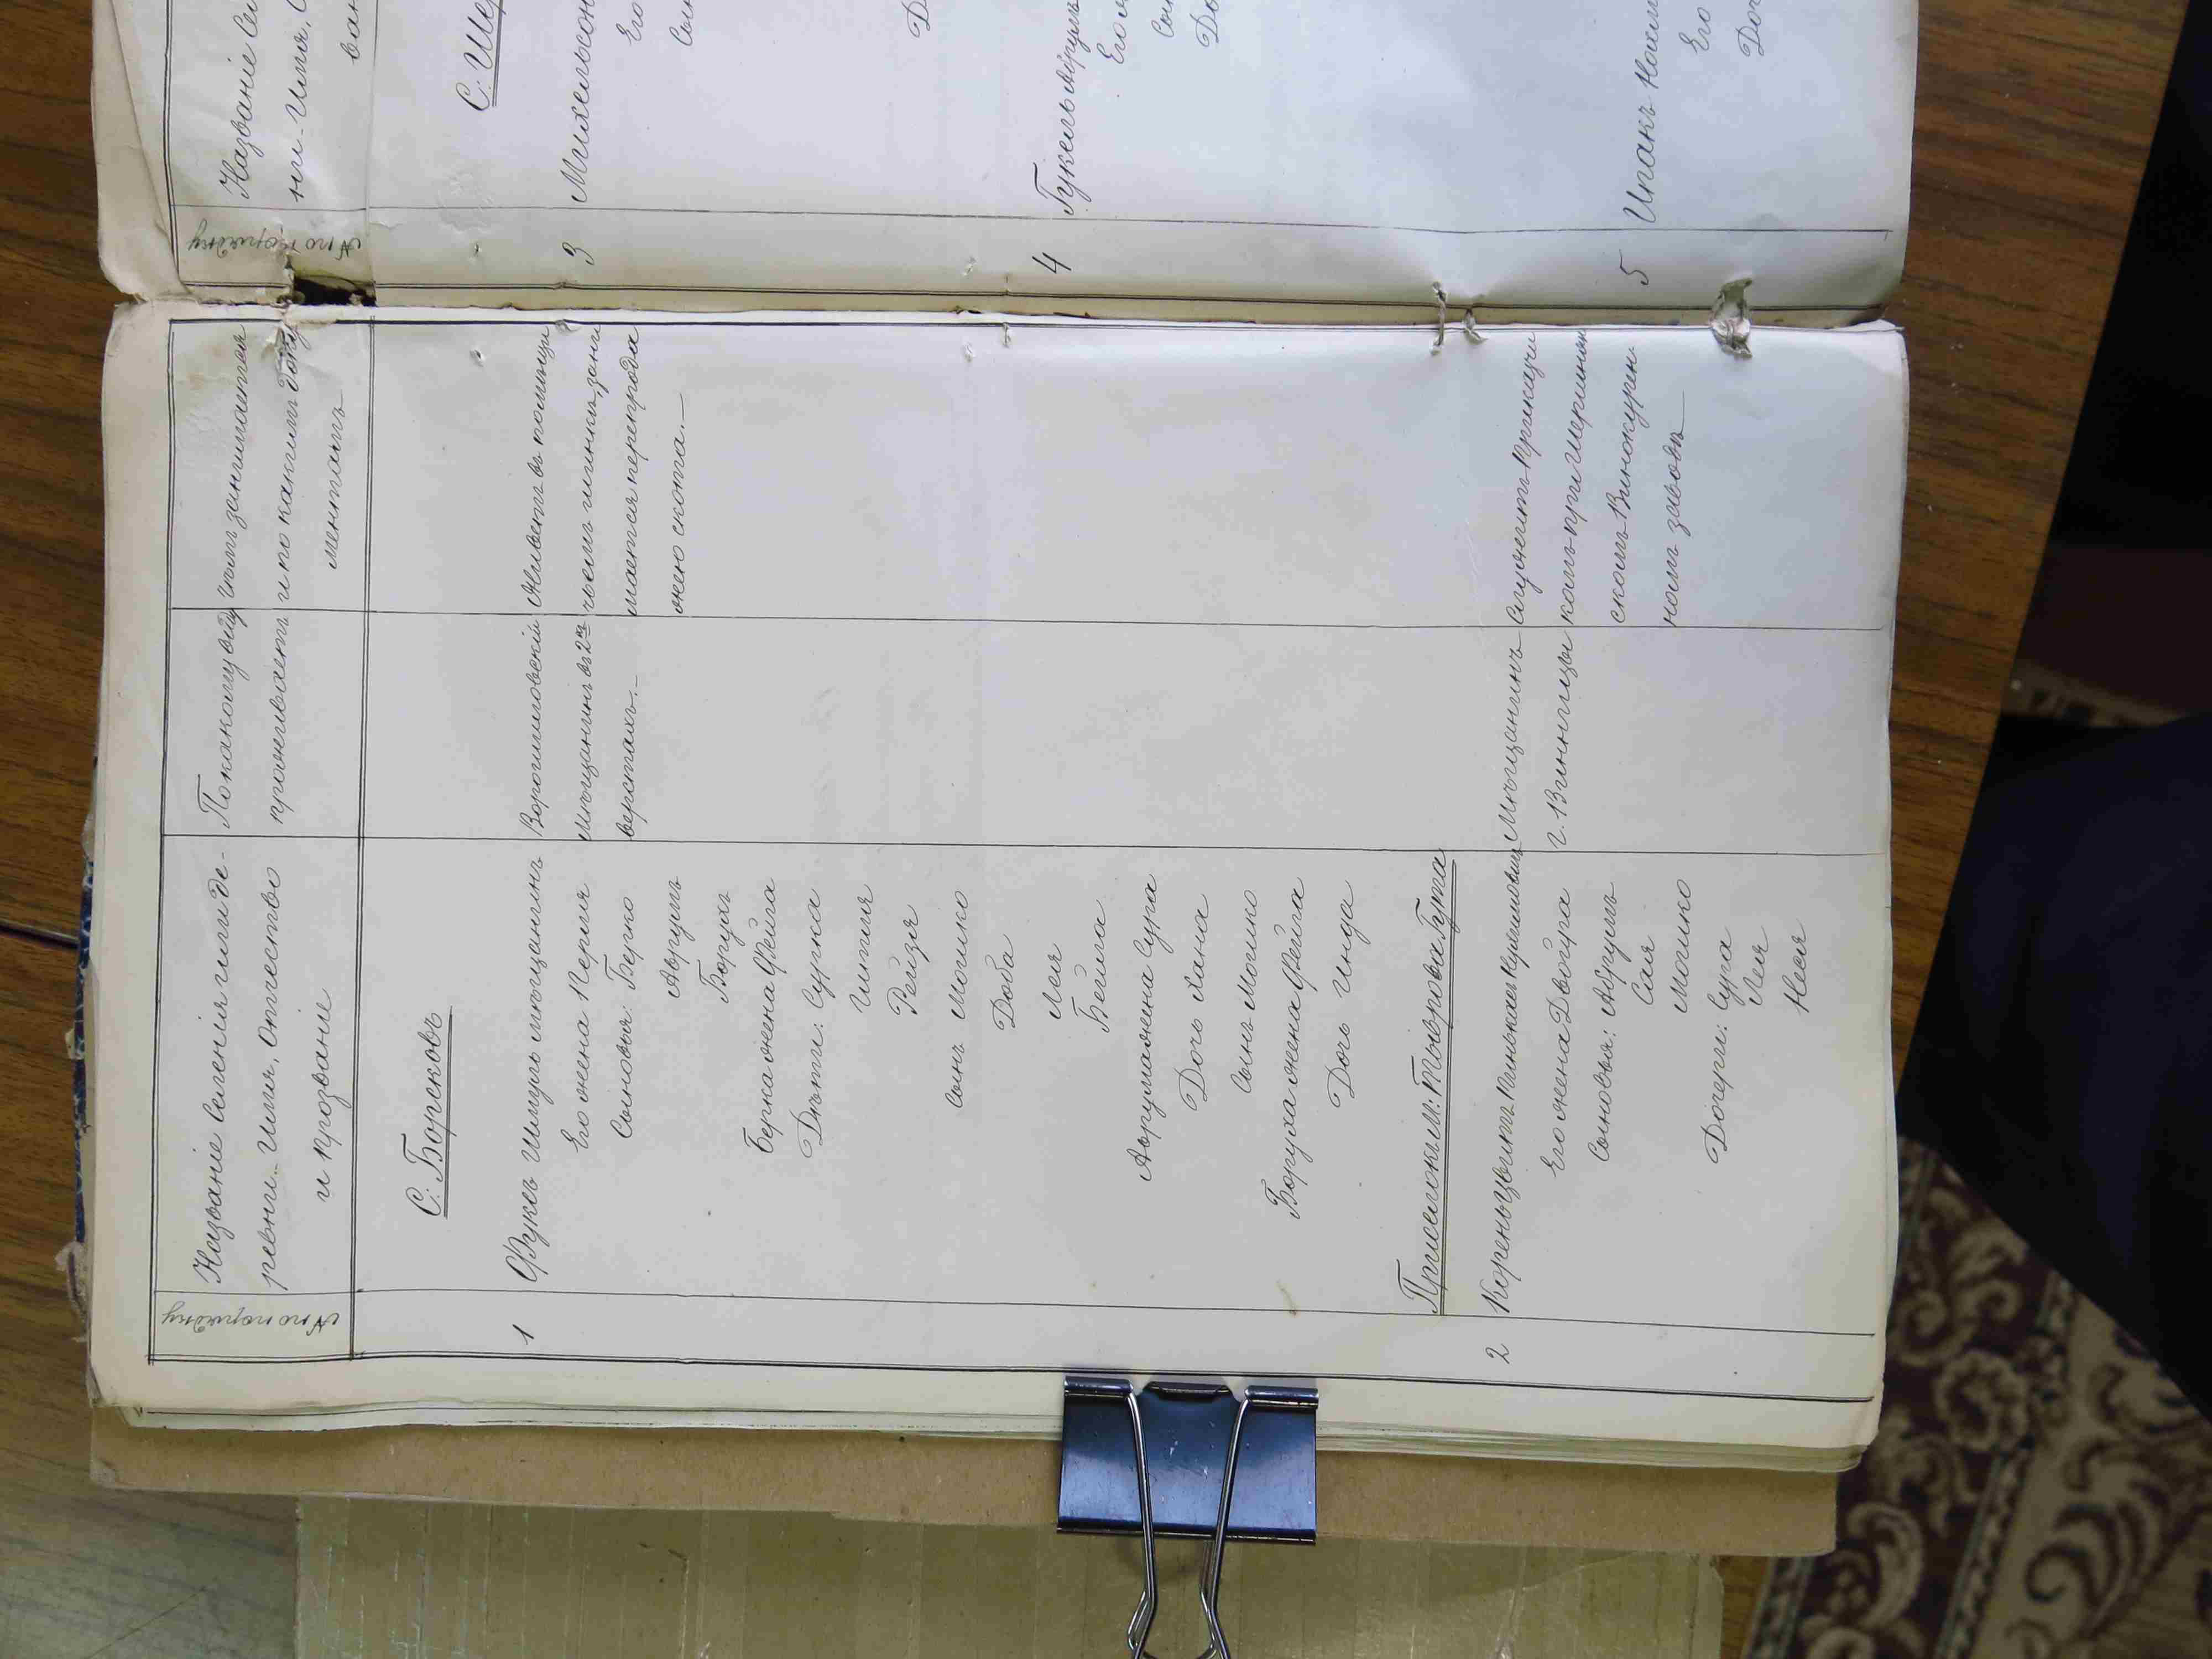 № по порядку
Названіе селенія или де-
ревни. Имя, Отчество
и Прозваніе
По какому виду
проживаетъ
Чѣмъ занимается
и по какимъ доку
ментамъ
С: Борсковъ
1
Фуксъ Шмуль мѣщанинъ
Ворошиловскій
мѣщанинъ въ 2хъ
верстахъ.-
Живетъ въ помѣщи
чьемъ шинкѣ, зани
мается перепрода
жею скота.-
Его жена Перля
Сыновья: Берко
Аврумъ
Борухъ
Берка жена Фейга
Дѣти: Сурка
Шпиля
Рейзя
Сынъ Мошко
Доба
Лея
Бейла
Аврума жена Сура
Дочь Хана
Сынъ Мошко
Боруха жена Фейга
Дочь Инда
Приселокъ М: Тыврова Гута
2
Кореньцвитъ Пиньхасъ
Мѣщанинъ
г. Винницы
Служитъ Прикащи
комъ при Шершнян
скомъ Винокурен
номъ заводѣ
Его жена Двойра
Сыновья: Аврумъ
Сая
Мошко
Дочери: Сура
Лея
Неся
№ по порядку
Названіе Се
ни. Имя, О
С: Шер
3
Михельсон
Его
Сын
Д
4
Гукель Аврумъ
Его ж
Сы
До
5
Ицакъ
Его
Доч